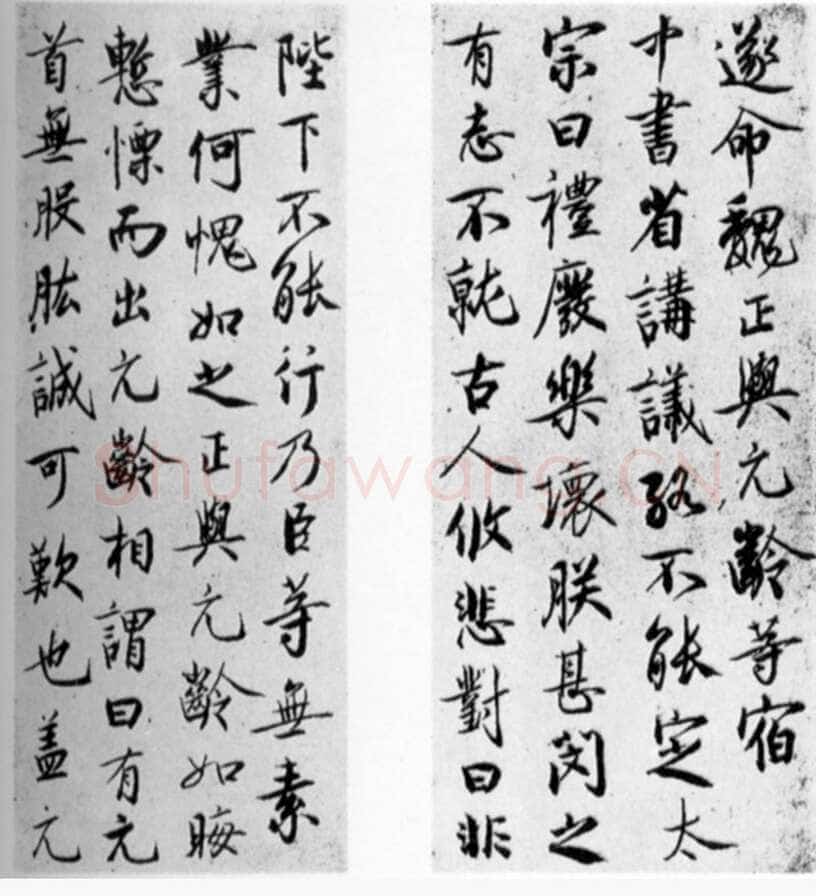 遂命魏正與元齡等宿
中書省講議終不能定太
宗曰禮廢樂壞朕甚閔之
有志不就古人攸悲對曰非
陛下不能行乃臣等無素
業何愧如之正與元齡如晦
慙慄而出元齡相謂曰有元
首無股肱誠可歎也盖元
Shufawang.CN